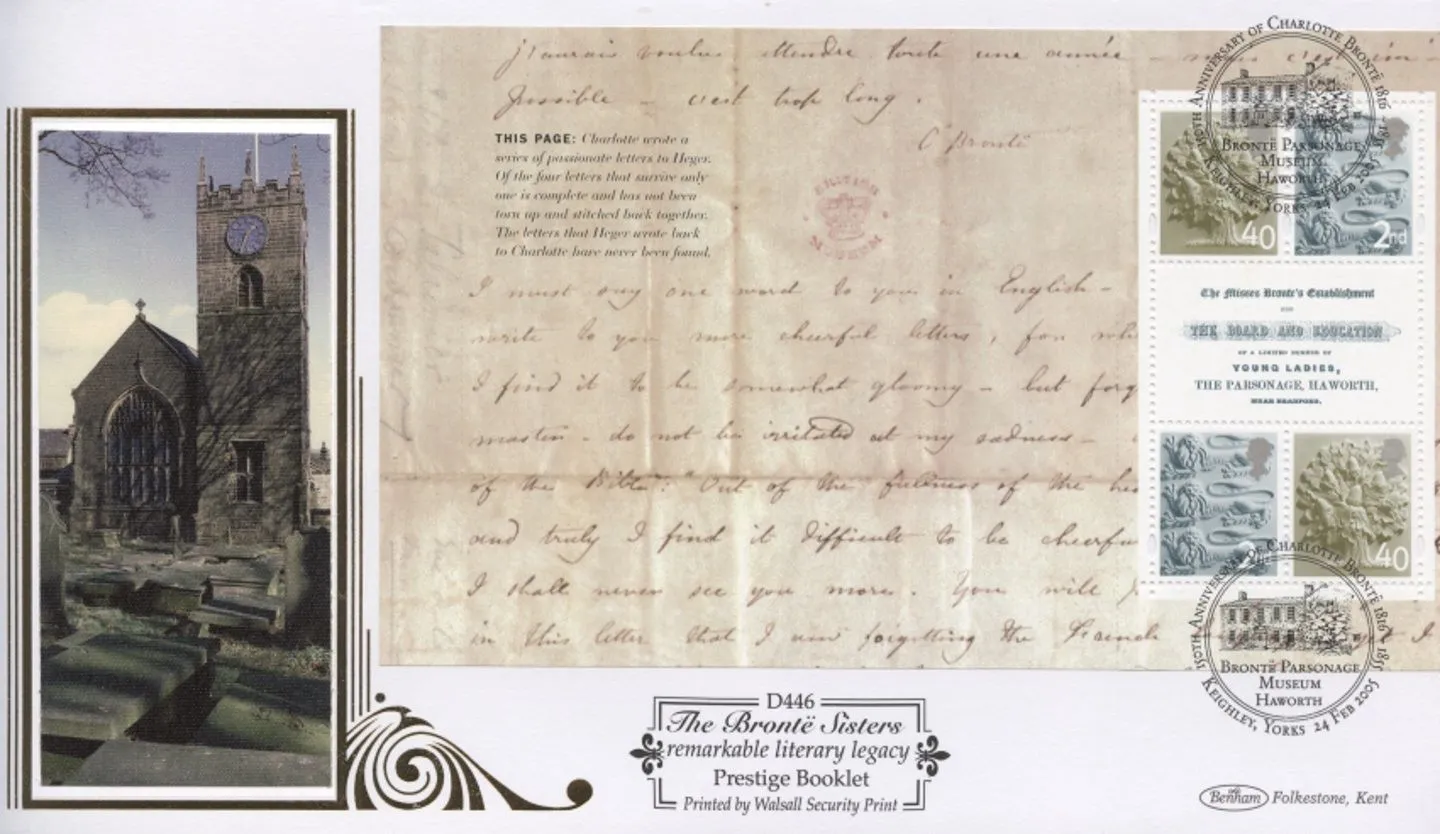 j'aurais voulu attendre toute une année
possible – c'est trop long.
C Brontë
THIS PAGE: Charlotte wrote a
series of passionate letters to Heger.
Of the four letters that survive only
one is complete and has not been
torn up and stitched back together.
The letters that Heger wrote back
to Charlotte have never been found.
BRITISH
MUSEUM
I must say one word to you in English –
write to you more cheerful letters, for
I find it to be somewhat gloomy – but
master – do not be irritated at my sadness –
of the Bible: "Out of the fulness of the
and truly I find it difficult to be
I shall never see you more. You will
in this letter that I am forgetting the French
150TH ANNIVERSARY OF CHARLOTTE BRONTË 1816 - 1855
BRONTË PARSONAGE
MUSEUM
HAWORTH
KEIGHLEY, YORKS 24 FEB 2005
40
2nd
The Misses Brontë's Establishment
FOR
THE BOARD AND EDUCATION
OF A LIMITED NUMBER OF
YOUNG LADIES,
THE PARSONAGE, HAWORTH,
NEAR BRADFORD.
40
150TH ANNIVERSARY OF CHARLOTTE BRONTË 1816 - 1855
BRONTË PARSONAGE
MUSEUM
HAWORTH
KEIGHLEY, YORKS 24 FEB 2005
D446
The Brontë Sisters
remarkable literary legacy
Prestige Booklet
Printed by Walsall Security Print
Benham Folkestone, Kent